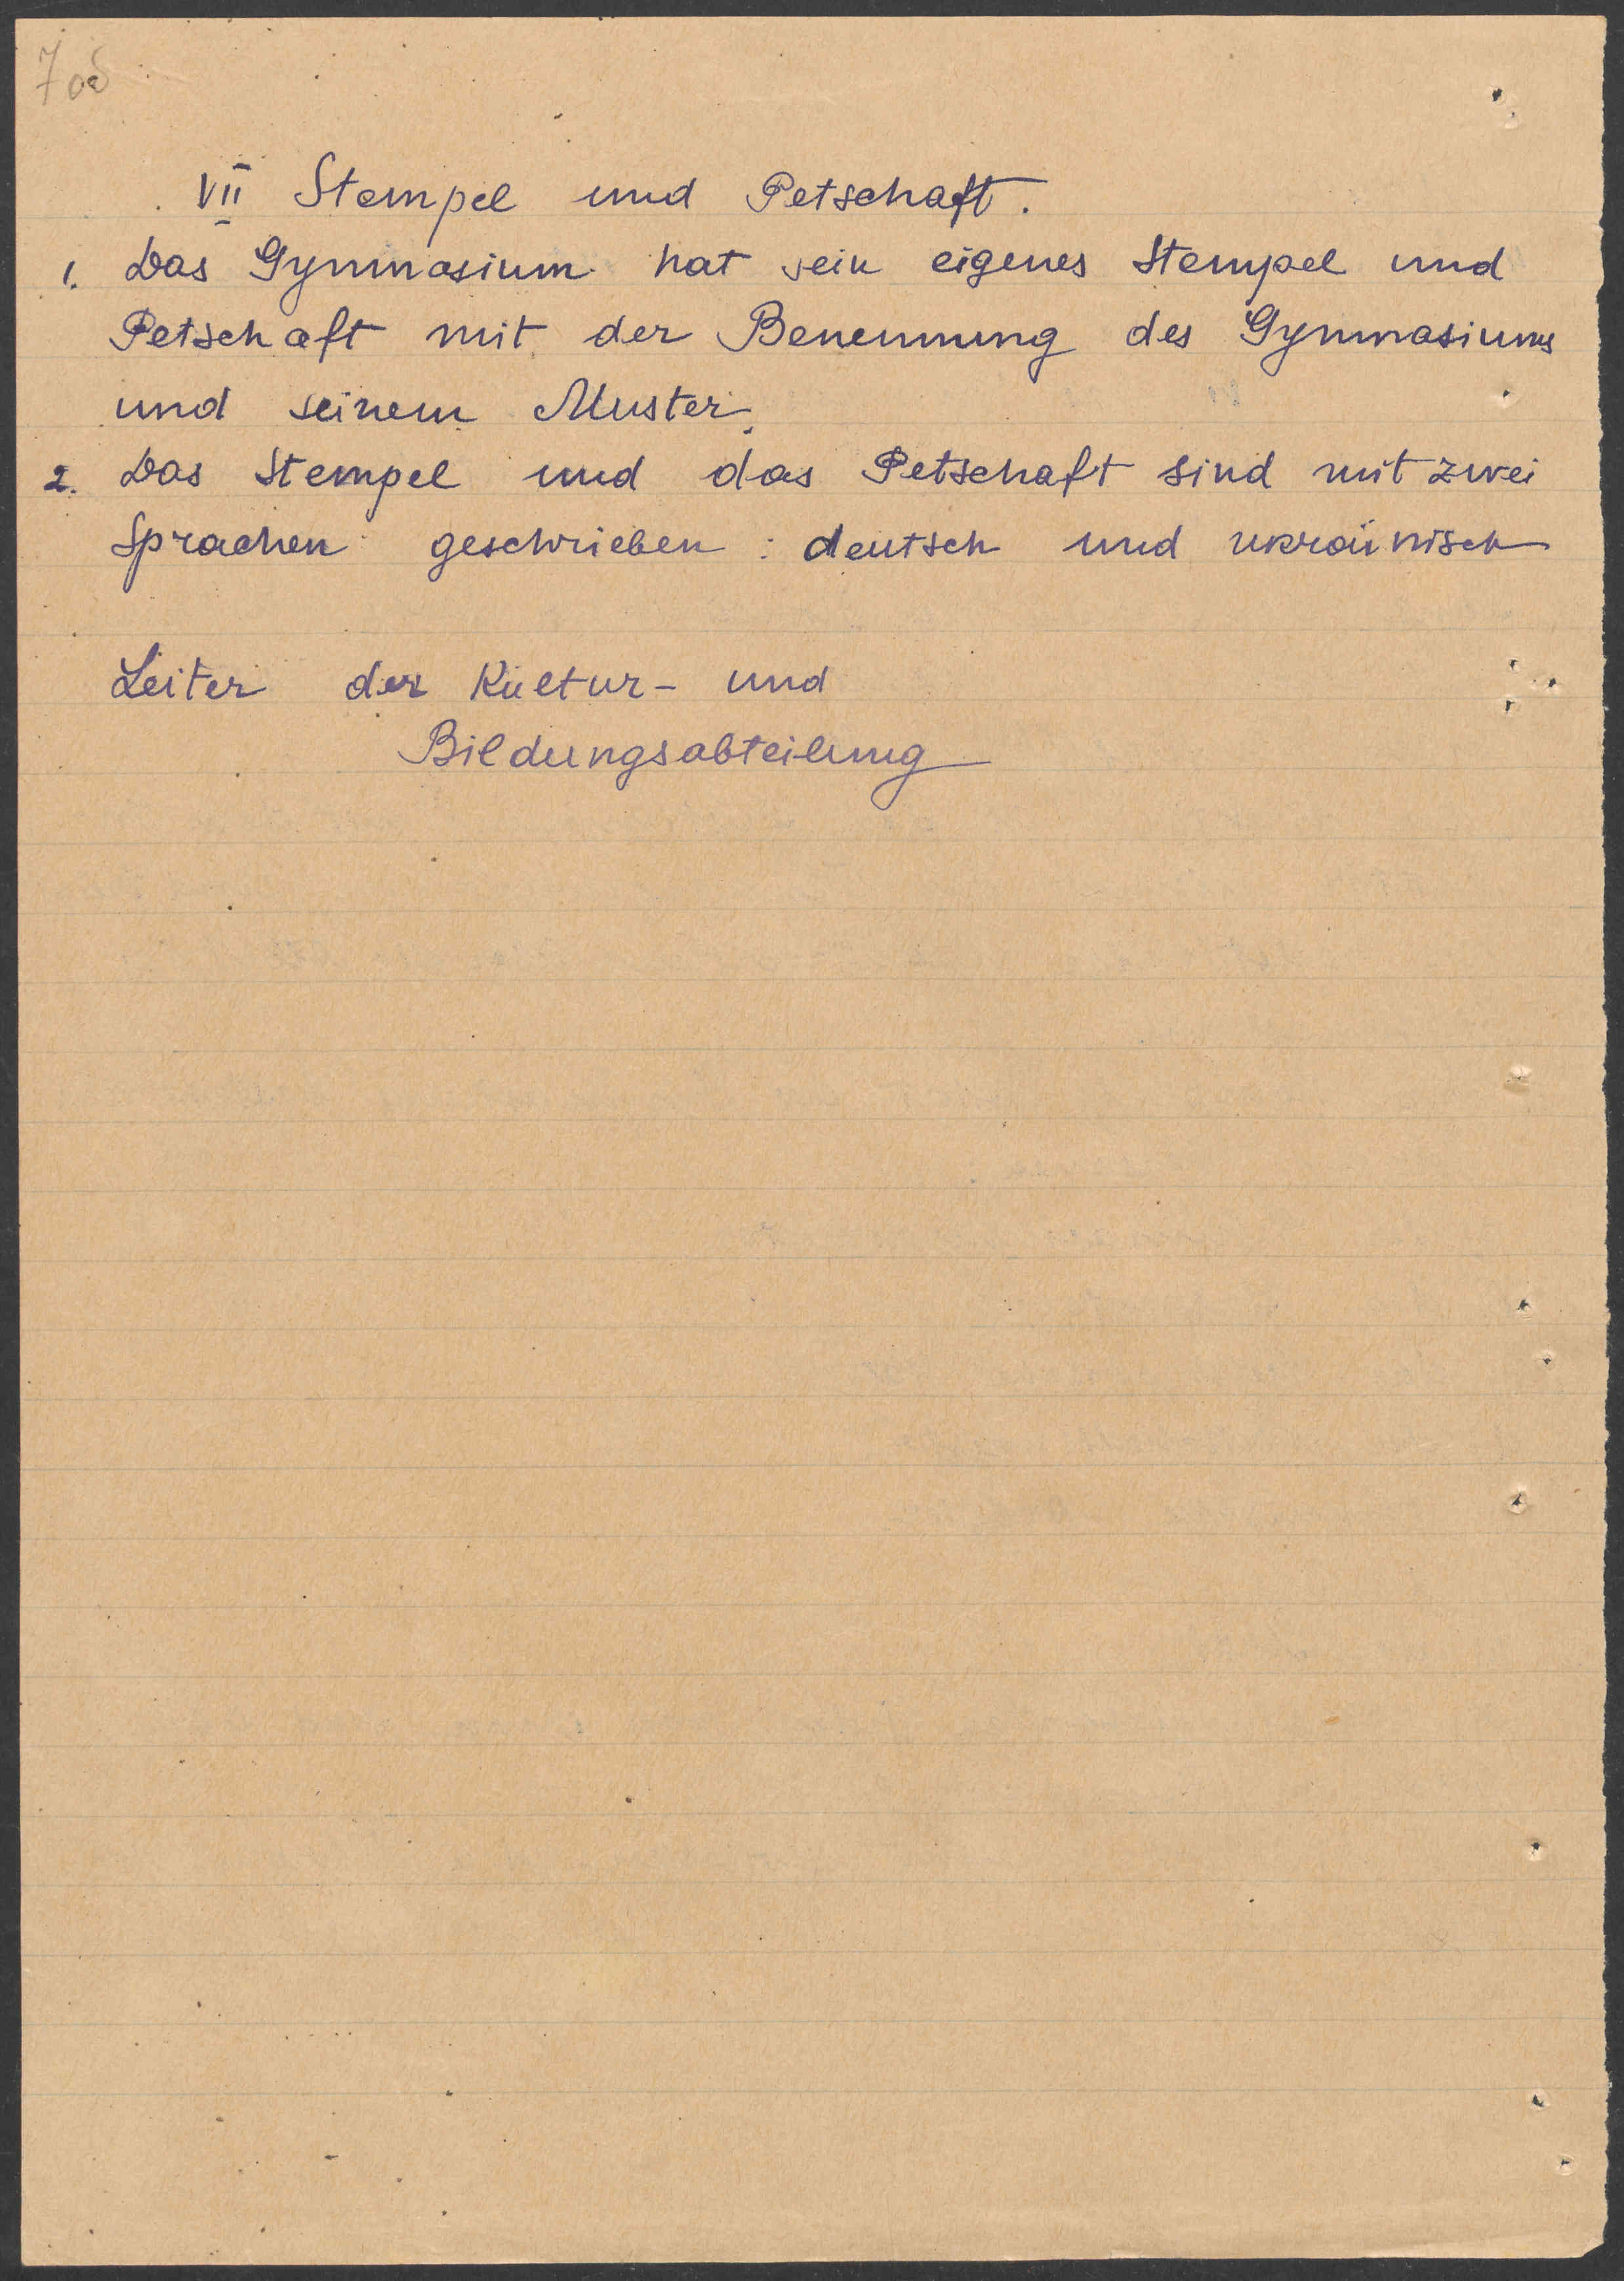 7 об
VII Stempel und Petschaft.
1. Das Gymnasium hat sein eigenes Stempel und
Petschaft mit der Benennung des Gymnasiums
und seinem Muster.
2. Das Stempel und das Petschaft sind mit zwei
Sprachen geschrieben: deutsch und ukrainisch
Leiter der Kultur- und
Bildungsabteilung